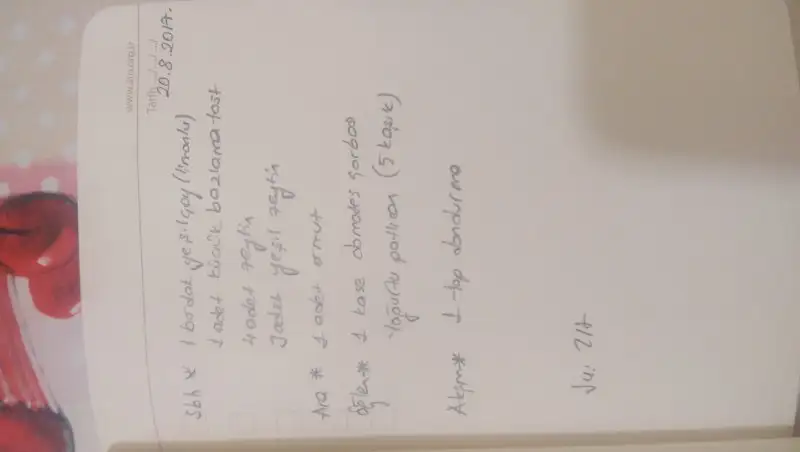 Tarih
20.8.2017.
Sbh * 1 bardak yeşil çay (limonlu)
1 adet küçük bazlama tost
4 adet zeytin
2 adet yeşil zeytin
Ara * 1 adet armut
Öğlen * 1 kase domates çorbası
Yoğurtlu patlıcan (5 kaşık)
Akşm * 1 top dondurma
Su: 2 lt